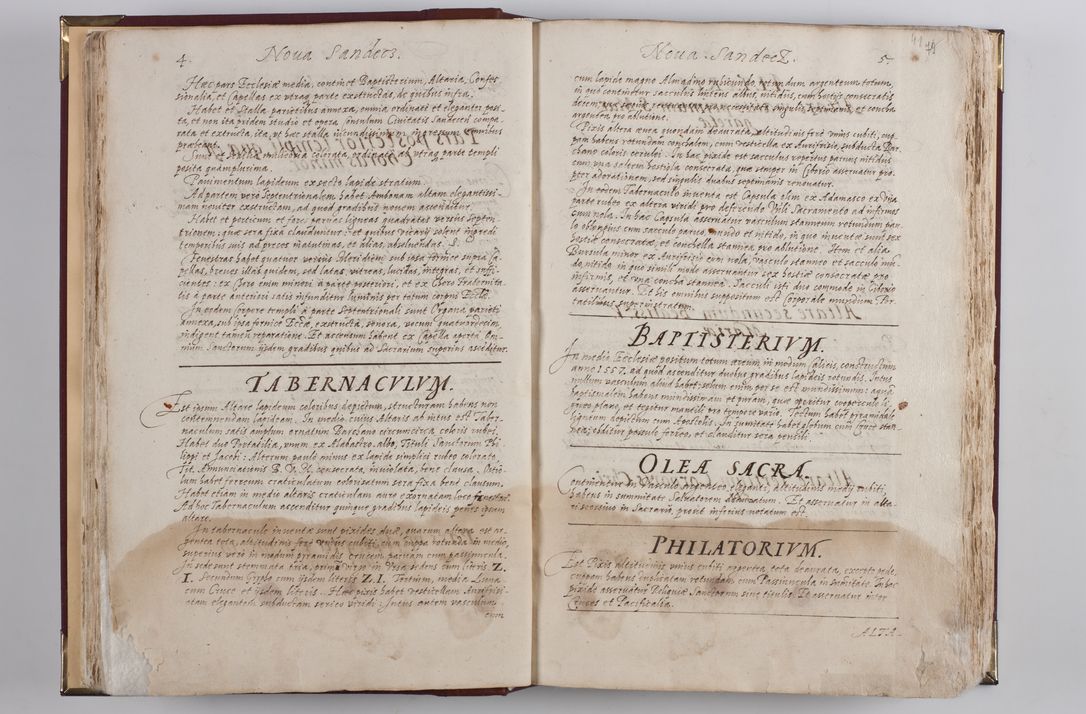 4. Noua Sandecz.
Hæc pars Ecclesiæ media, continet Baptisterium, Altaria, Confes-
sionalia, et Capellas ex utraq parte exstructas, de quibus infra.
Habet et Stalla parietibus annexa, omnia ordinate et eleganter posi-
ta, et non ita pridem studio et opera Consulum Ciuitatis Sandecen compa-
rata et extructa, ita, ut hæc stalla iucundissimum ingressum omnibus
præbeant.
Sunt et Stalla multicoria colorata, eleganter ab utraq parte templi
posita quamplurima.
Pauimentum lapideum ex secto lapide stratum.
Ad partem vero Septentrionalem habet Ambonam altam elegantissi-
mam nouiter exstructam, ad quod gradibus nouem ascenditur.
Habet et porticum et fores paruas ligneas quadratas versus Septen-
trionem: quæ sera fixa clauduntur: et quibus vicarij solent ingredi
temporibus suis ad preces matutinas, et alias absoluendas.
Fenestras habet quatuor versus Meridiem sub ipso fornice supra Ca-
pellas, breues illas quidem, sed latas, vitreas, lucidas, integras, et suffi-
cientes: ex Choro enim minori à parte posteriori, et ex Choro Fraternita-
tis à parte anteriori satis infunditur luminis per totum corpus Ecclæ.
In eodem corpore templi à parte Septentrionali sunt Organa parieti
annexa, sub ipso fornice Eccæ, exstructa, sonora, vocum quatuordecim,
indigent tamen reparatione. Et ascensum habent ex Capella aperta Om-
nium Sanctorum ijsdem gradibus quibus ad Sacrarium superius asceditur.
TABERNACVLVM.
Est ipsum Altare lapideum coloribus depictum, structuram habens non
contemnendam lapideam. In medio cuius Altaris ab intus est Taber-
naculum satis amplum ornatum Bursano circumcirca coloris rubri.
Habet duo Portatilia, vnum ex Alabastro albo, Tituli Sanctorum Phi
lippi et Jacobi: Alterum paulo minus ex lapide simplici rubeo colorato,
Tit. Annunciationis B. V. M. consecrata, inuiolata, bene clausa. Ostio-
lum habet ferreum craticulatum coloratum sera fixa bene clausum.
Habet etiam in medio altaris craticulam auro exornatam loco fenestræ.
Ad hoc Tabernaculum ascenditur quinque gradibus lapideis penes ipsum
altare.
In tabernaculo inuentæ sunt pixides duæ, quarum altera est ar-
gentea tota, altitudinis fere vnius cubiti, cum cuppa rotunda in medio,
superius vero in modum pyramidis crucem paruam cum passiuncula.
In sede sunt stemmata tria, primum Virgo in Vrsa sedens cum literis Z.
I. Secundum Gryppo cum ijsdem literis Z. I. Tertium, media Luna
cum Cruce et ijsdem literis. Hæc pixis habet vesticellam Aurifrisi-
atam elegantem subductam serico viridi. Intus autem vasculum
cum
Noua Sandecz. 5.
41
cum lapide magno Almadino rubicundo rotundum, argenteum totum,
in quo continetur sacculus linteus albus, nitidus, cum hostijs consecratis
decem, quæ semper secundum necessitatem singulis septimanis, et concha
argentea pro ablutione.
Pixis altera ænea quondam deaurata, altitudinis fere vnius cubiti, cup-
pam habens rotundam conchatam, cum vesticella ex Aurifrisio, subducta Bur-
chano coloris cerulei. In hac pixide est sacculus repertus paruus nitidus
cum vna solum hostiola consecrata, quæ semper in Ciborio asseruatur pro-
pter adorationem, sed singulis duabus septimanis renouatur.
In eodem Tabernaculo inuenta est Capsula olim ex Adamasco ex vna
parte rubeo ex altera viridi pro deferendo Vbli Sacramento ad infirmos
cum nola. In hac Capsula asseruatur vasculum stanneum rotundum pau-
lo oblongius cum sacculo paruo, mundo et nitido, in quo inuentæ sunt sex
hostiæ consecratæ, et conchella stannea pro ablutione. Item et alia
Bursula minor ex Aurifrisio cum nola, vasculo stanneo et sacculo mun-
do, nitido, in quo simili modo asseruantur sex hostiæ consecratæ pro
infirmis, et vna concha stannea. Sacculi isti duo commode in Ciborio
asseruantur. Et his omnibus suppositum est Corporale mundum, Por-
tatilibus superinstratum.
BAPTISTERIVM.
In medio Ecclesiæ positum totum æreum in modum Calicis, constructum
anno 1557. ad quod ascenditur duobus gradibus lapideis rotundis. Intus
nullum vasculum aliud habet: solum enim per se est mundissimum: aqua
baptismalem habens mundissimam et puram, quæ operitur coopertculo li-
gneo plano, et tegitur mantili pro tempore vario. Tectum habet pyramidale
ligneum depictum cum Apostolis. In sumitate habet globum cum Cruce stan-
nea; clauditur pessulo ferreo, et clauditur sera pensili.
OLEA SACRA.
Continentur in vasculo argenteo, eleganti, altitudinis medij cubiti,
habens in summitate Saluatorem deauratum. Et asseruatur in alta-
ri seorsiuo in Sacrario, prout inferius notatum est.
PHILATORIVM.
Est Pixis altitudinis vnius cubiti argentea, tota deaurata, excepto pede,
cuppam habens duplicatam rotundam, cum Passiuncula in sumitate. In hac
pixide asseruatur Reliquiæ Sanctorum sine titulis. Et asseruatur inter
Cruces et Pacificalia.
ALTA-